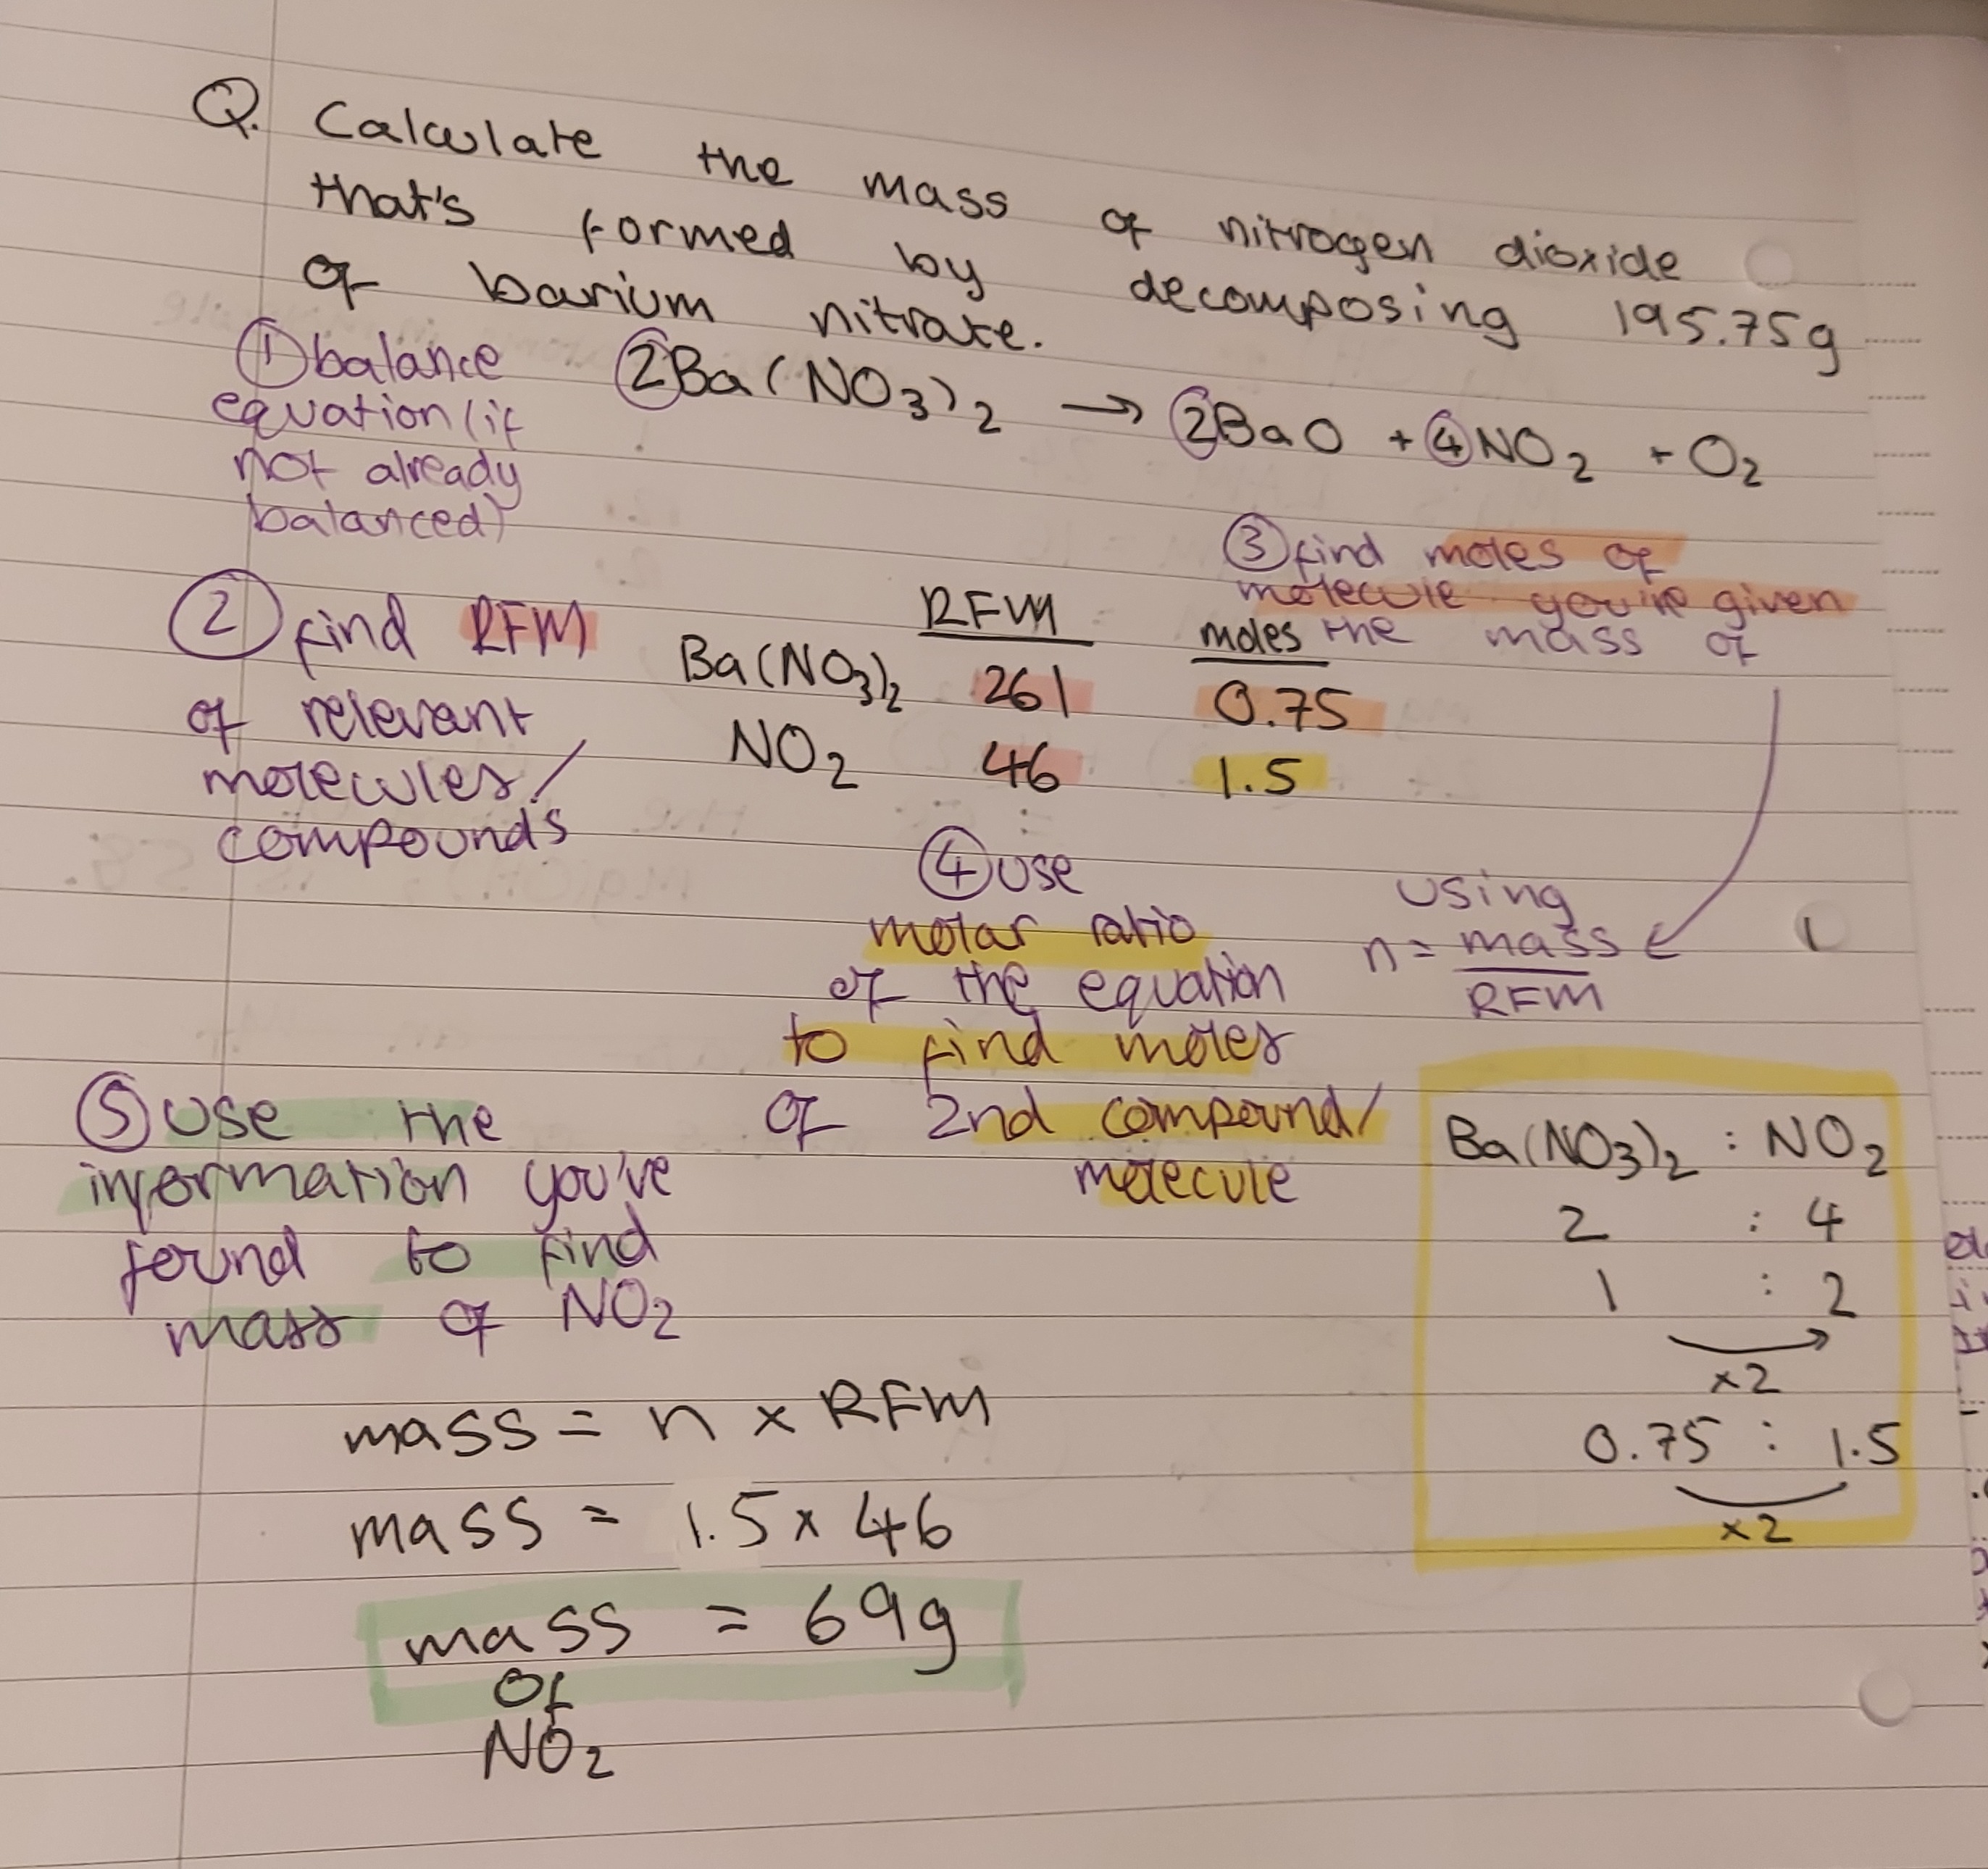 Q. Calculate the mass of nitrogen dioxide
that's formed by decomposing 195.75g
of barium nitrate.
① balance
equation (if
not already
balanced)
2Ba(NO3)2 → 2BaO + 4NO2 + O2
② find RFM
of relevant
molecules/
compounds
RFM
Ba(NO3)2 261
NO2 46
③ find moles of
molecule you're given
the mass of
moles
0.75
1.5
using
n = mass
RFM
④ use
molar ratio
of the equation
to find moles
of 2nd compound/
molecule
Ba(NO3)2 : NO2
2 : 4
1 : 2
x2
0.75 : 1.5
x2
⑤ use the
information you've
found to find
mass of NO2
mass = n x RFM
mass = 1.5 x 46
mass = 69g
of
NO2